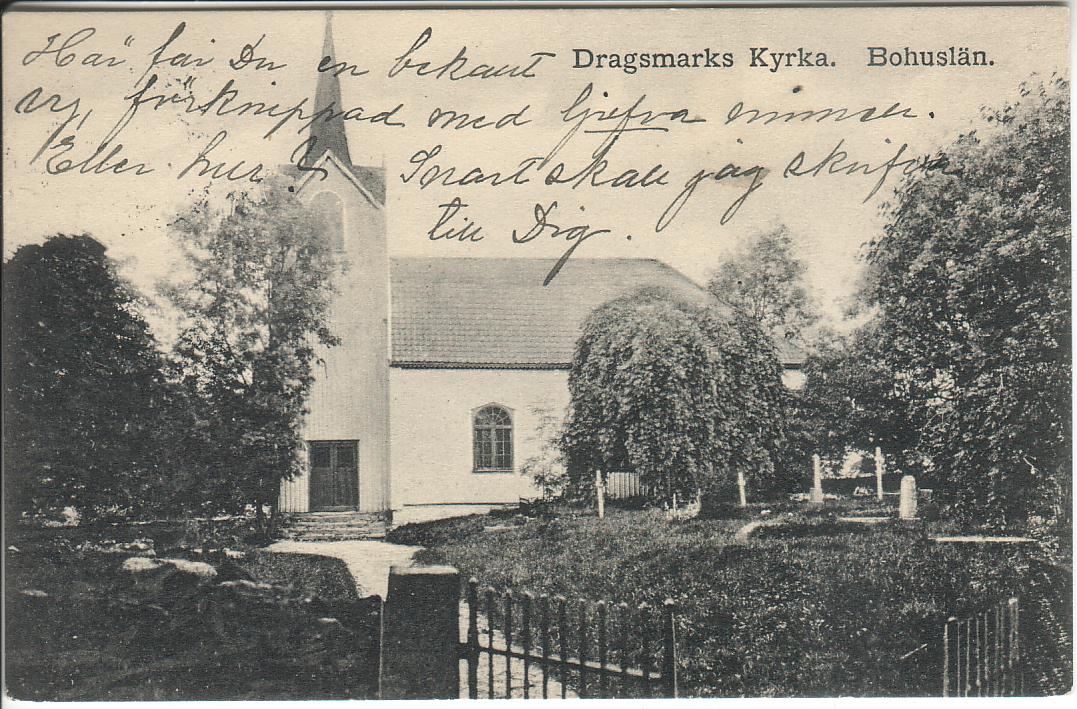 Här får Du en bekant
Dragsmarks Kyrka. Bohuslän.
vy, förknippad med ljufva minnen.
Eller hur? Snart skall jag skrifva
till Dig.